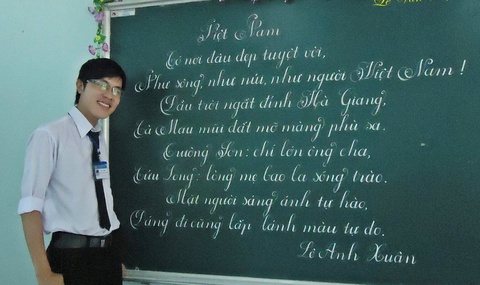 Việt Nam
Có nơi đâu đẹp tuyệt vời,
Như sông, như núi, như người Việt Nam !
Đầu trời ngất đỉnh Hà Giang,
Cà Mau mũi đất mỡ màng phù sa.
Trường Sơn : chí lớn ông cha,
Cửu Long : lòng mẹ bao la sóng trào.
Mặt người sáng ánh tự hào,
Dáng đi cũng lấp lánh màu tự do.
Lê Anh Xuân